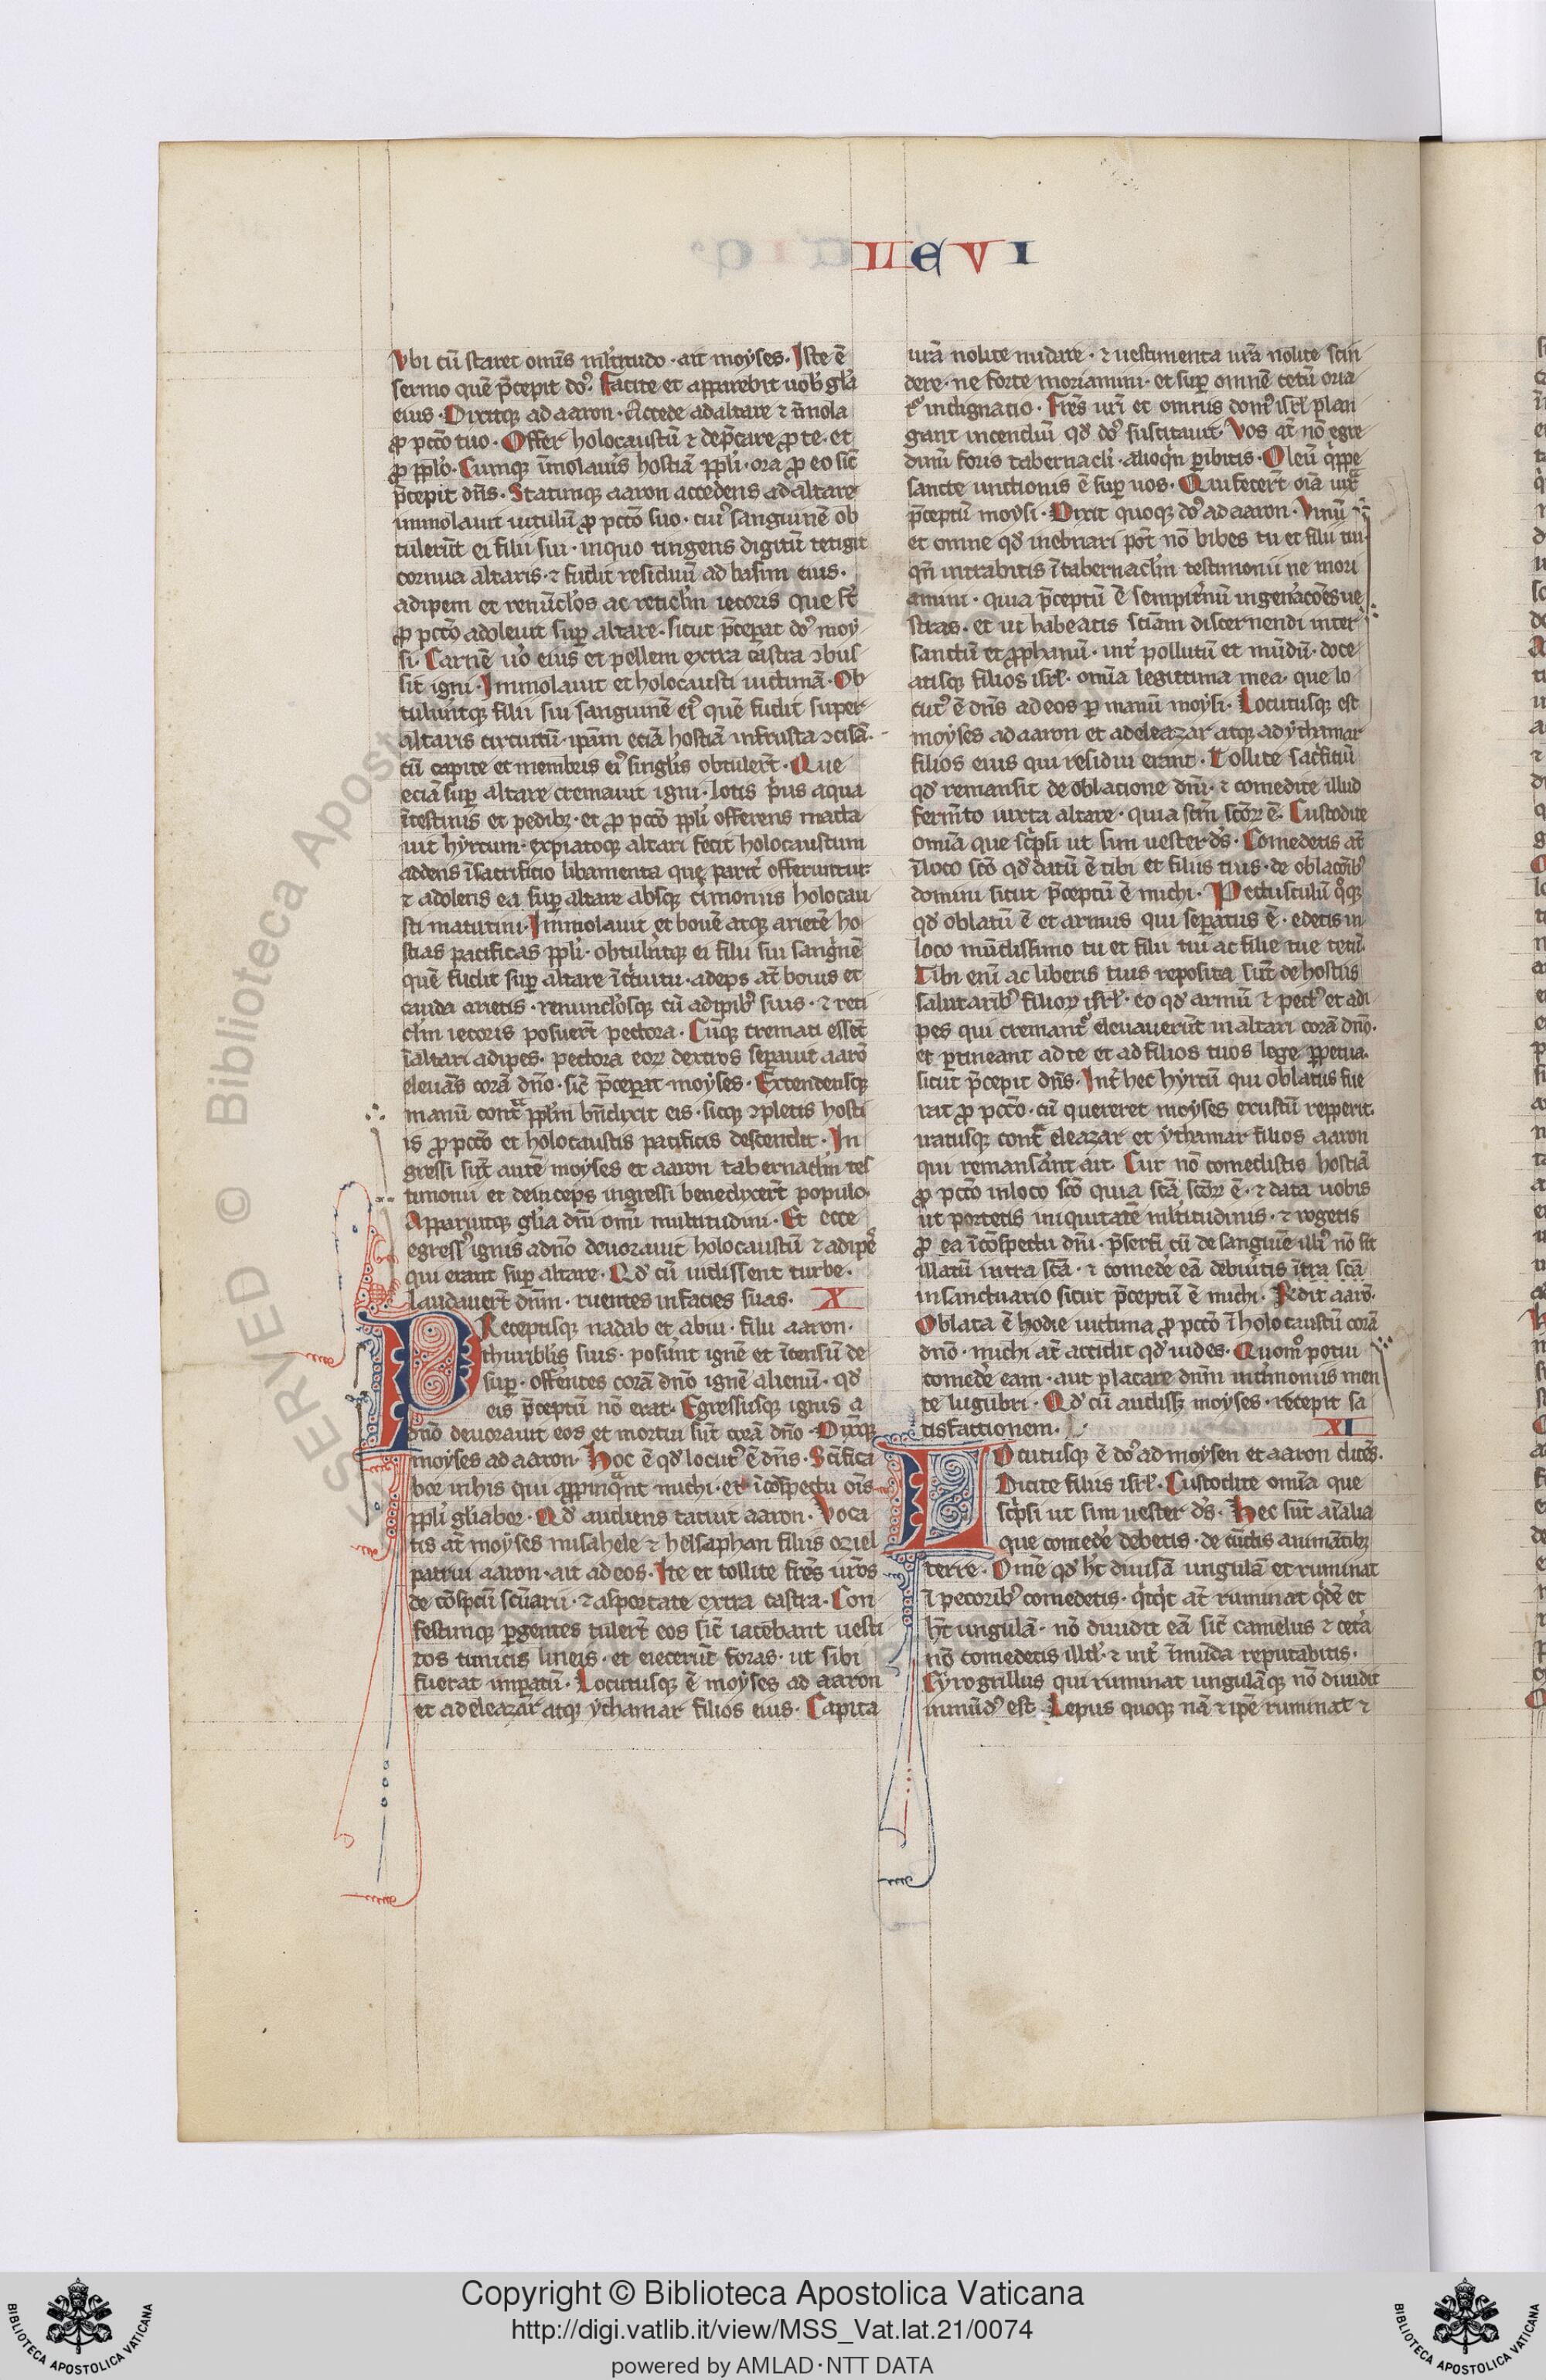 LEVI
Vbi cū staret omīs ml̃titudo · ait moyses. Iste ē
sermo quē p̄cepit do᷒. Facite et apparebit uob̓ gl̓a
eius · Dixitqꝫ ad aaron · Accede ad altare ⁊ īmola
ꝓ pccō tuo · Offer holocaustū ⁊ dep̄care ꝓ te. et
ꝓ ppl̓o. Cumqꝫ īmolauis hostiā ppl̓i · ora ꝓ eo sic̄
p̄cepit dn̄s. Statimqꝫ aaron accedens ad altare
immolauit uitulū ꝓ pccō suo · cui᷒ sanguinē ob
tulerūt ei filii sui · in quo tingens digitū tetigit
cornua altaris · ⁊ fudit residuū ad basim eius ·
adipem et renūcl̓os ac reticl̓m iecoris que sūt
ꝓ pccō adoleuit suꝑ altare · sicut p̄ceperat do᷒ moy
si. Carnē u̓o eius et pellem extra castra ꝯbus
sit igni · Immolauit et holocausti uictimā · Ob
tuler̄ntqꝫ filii sui sanguinē ei᷒ quē fudit super
altaris circuitū · ip̄am eciā hostiā in frusta ꝯcisā ·
cū capite et membris ei᷒ singl̓is obtuler̄t · Que
eciā suꝑ altare cremauit igni · lotis p̓us aqua
ītestinis et pedibꝫ · et ꝓ pccō ppl̓i offerens macta
uit hyrcum · expiatoqꝫ altari fecit holocaustum
addens ī sacrificio libamenta que parit̓ offeruntur
⁊ adolens ea suꝑ altare absqꝫ c̓imoniis holocau
sti matutini · Immolauit et bouē atqꝫ arietē ho
stias pacificas ppl̓i · obtuler̄tqꝫ ei filii sui sangnē
quē fudit suꝑ altare ī c̓cuitu · adeps at̄ bouis et
cauda arietis · renuncl̓osqꝫ cū adipib᷒ suis · ⁊ reti
cl̓m iecoris posuer̄t pectora · Cūqꝫ cremati essēt
ī altari adipes · pectora eoꝝ dextros seꝑauit aarō
eleuās corā dn̄o · sic̄ p̄ceperat moyses · Extendensqꝫ
manū contᵃ ppl̓m bn̄dixit eis · sicqꝫ ꝯpletis hosti
is ꝓ pccō et holocaustis pacificis descendit · In
gressi sūt autē moyses et aaron tabernacl̓m tes
timonii et deinceps ingressi benedixer̄t populo
Apparuitqꝫ gl̓ia dn̄i omī multitudini · Et ecce
egress᷒ ignis a dn̄o deuorauit holocaustū ⁊ adipes
qui erant suꝑ altare · Qd̓ cū uidissent turbe ·
laudauer̄t dn̄m · ruentes in facies suas · X
Receptisqꝫ nadab et abiu · filii aaron ·
thuribl̓is suis · posūnt ignē et ītensū de
suꝑ · offēntes corā dn̄o ignē alienū · qd̓
eis p̄ceptū nō erat · Egressusqꝫ ignis a
dn̄o deuorauit eos et mortui sūt corā dn̄o · Dixitqꝫ
moyses ad aaron · Hoc ē qd̓ locut᷒ ē dn̄s · Sc̄ifica
bor in his qui appinqᵃnt michi · et ī cōspectu oīs
ppl̓i gl̓iabor · Qd̓ audiens tacuit aaron · Voca
tis at̄ moyses misahele ⁊ helsaphan filiis oziel
patrui aaron · ait ad eos · Ite et tollite fr̄es ur̄os
de cōspc̄u sc̄uarii · ⁊ asportate extra castra · Con
festimqꝫ ꝑgentes tuler̄t eos sic̄ iacebant uesti
tos tunicis lineis · et eiecerūt foras · ut sibi
fuerat impatū · Locutusqꝫ ē moyses ad aaron
et ad eleazar atqꝫ ythamar filios eius · Capita
ur̄a nolite nudare · ⁊ uestimenta ur̄a nolite scin
dere · ne forte moriamini · et suꝑ omnē cetū oria
t᷒ indignatio · Fr̄es ur̄i et omnis dom᷒ isr̄l plan
gant incendiū qd̓ do᷒ suscitauit · Vos at̄ nō egre
dimī foris tabernacl̓i · alioqn̄ ꝑibitis · Oleū qꝓpe
sancte unctionis ē suꝑ uos · Qui fecer̄t oīa iuxᵃ
p̄ceptū moysi · Dixit quoqꝫ do᷒ ad aaron · Vinū
et omne qd̓ inebriari pōt nō bibes tu et filii tui
qn̄ intrabitis ī tabernacl̓m testimonii ne mori
amini · quia p̄ceptū ē sempit̓nū in gen̓acōes ue
stras · et ut habeatis sciām discernendi inter
sanctū et ꝓphanū · int̓ pollutū et mūdū · doce
atisqꝫ filios isr̄l · omīa legittima mea · que lo
cut᷒ ē dn̄s ad eos ꝑ manū moysi · Locutusqꝫ est
moyses ad aaron et ad eleazar atqꝫ ad ythamar
filios eius qui residui erant · Tollite sacficiū
qd̓ remansit de oblatione dn̄i · ⁊ comedite illud
sine ferm̄to iuxta altare · quia sc̄m sc̄oꝝ ē · Custodite
omīa que sc̓psi ut sim uester ds̄ · Comedetis at̄
ī loco sc̄o qd̓ datū ē tibi et filiis tuis · de oblacōib᷒
domini sicut p̄ceptū ē michi · Pectusculū qꝫqꝫ
qd̓ oblatū ē et armus qui seꝑatus ē · edetis in
loco mūdissimo tu et filii tui ac filie tue tecū
Tibi enī ac liberis tuis reposita sūt de hostiis
salutarib᷒ filioꝝ isr̄l · eo qd̓ armū ⁊ pect᷒ et adi
pes qui cremant᷒ eleuauerūt in altari corā dn̄o ·
et ꝑtineant ad te et ad filios tuos lege ꝑpetua ·
sicut p̄cepit dn̄s · Int̓ hec hyrcū qui oblatus fue
rat ꝓ pccō · cū quereret moyses exustū repperit ·
iratusqꝫ contᵃ eleazar et ythamar filios aaron
qui remansānt ait · Cur nō comedistis hostiā
ꝓ pccō in loco sc̄o quia sc̄a sc̄oꝝ ē · ⁊ data uobis
ut portetis iniquitatē ml̃titudinis · ⁊ rogetis
ꝓ ea ī cōspectu dn̄i · p̄sertī cū de sanguīe illi᷒ nō sit
illatū intra sc̄a · ⁊ comedē eā debuītis ītra sc̄a
in sanctuario sicut p̄ceptū ē michi · Rēdit aarō ·
Oblata ē hodie uictima ꝓ pccō ī holocaustū corā
dn̄o · michi at̄ accidit qd̓ uides · Quom̊ potui
comedē eam · aut placare dn̄m in c̓imoniis men
te lugubri · Qd̓ cū audissꝫ moyses · recepit sa
tisfactionem · XI
Locutusqꝫ ē do᷒ ad moysen et aaron dicēs ·
Dicite filiis isr̄l · Custodite omīa que
sc̓psi ut sim uester ds̄ · Hec sūt aīalia
que comedē debetis · de cūctis animātibꝫ
terre · Omē qd̓ ht̄ diuisā ungulā et ruminat
ī pecorib᷒ comedetis · qcqd̓ at̄ ruminat qdē et
ht̄ ungulā · nō diuidit eā sic̄ camelus ⁊ cet̓a
nō comedetis illd̓ · ⁊ int̓ īmūda reputabitis ·
Cyrogrillus qui ruminat ungulāqꝫ nō diuidit
inmūd᷒ est · Lepus quoqꝫ nā ⁊ ip̄e ruminat ⁊
Copyright © Biblioteca Apostolica Vaticana
http://digi.vatlib.it/view/MSS_Vat.lat.21/0074
powered by AMLAD·NTT DATA
BIBLIOTECA APOSTOLICA VATICANA
BIBLIOTECA APOSTOLICA VATICANA